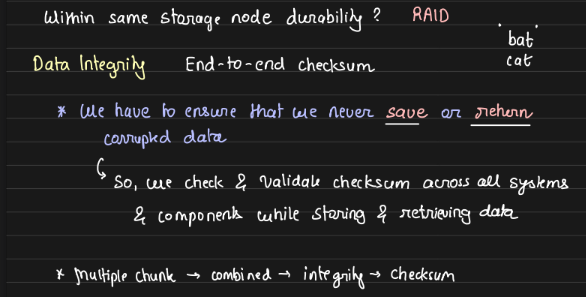 Within same storage node durability? RAID
bat
Data Integrity End-to-end checksum
cat
* We have to ensure that we never save or return
corrupted data
So, we check & validate checksum across all systems
& components while storing & retrieving data
* Multiple chunk → combined → integrity → checksum